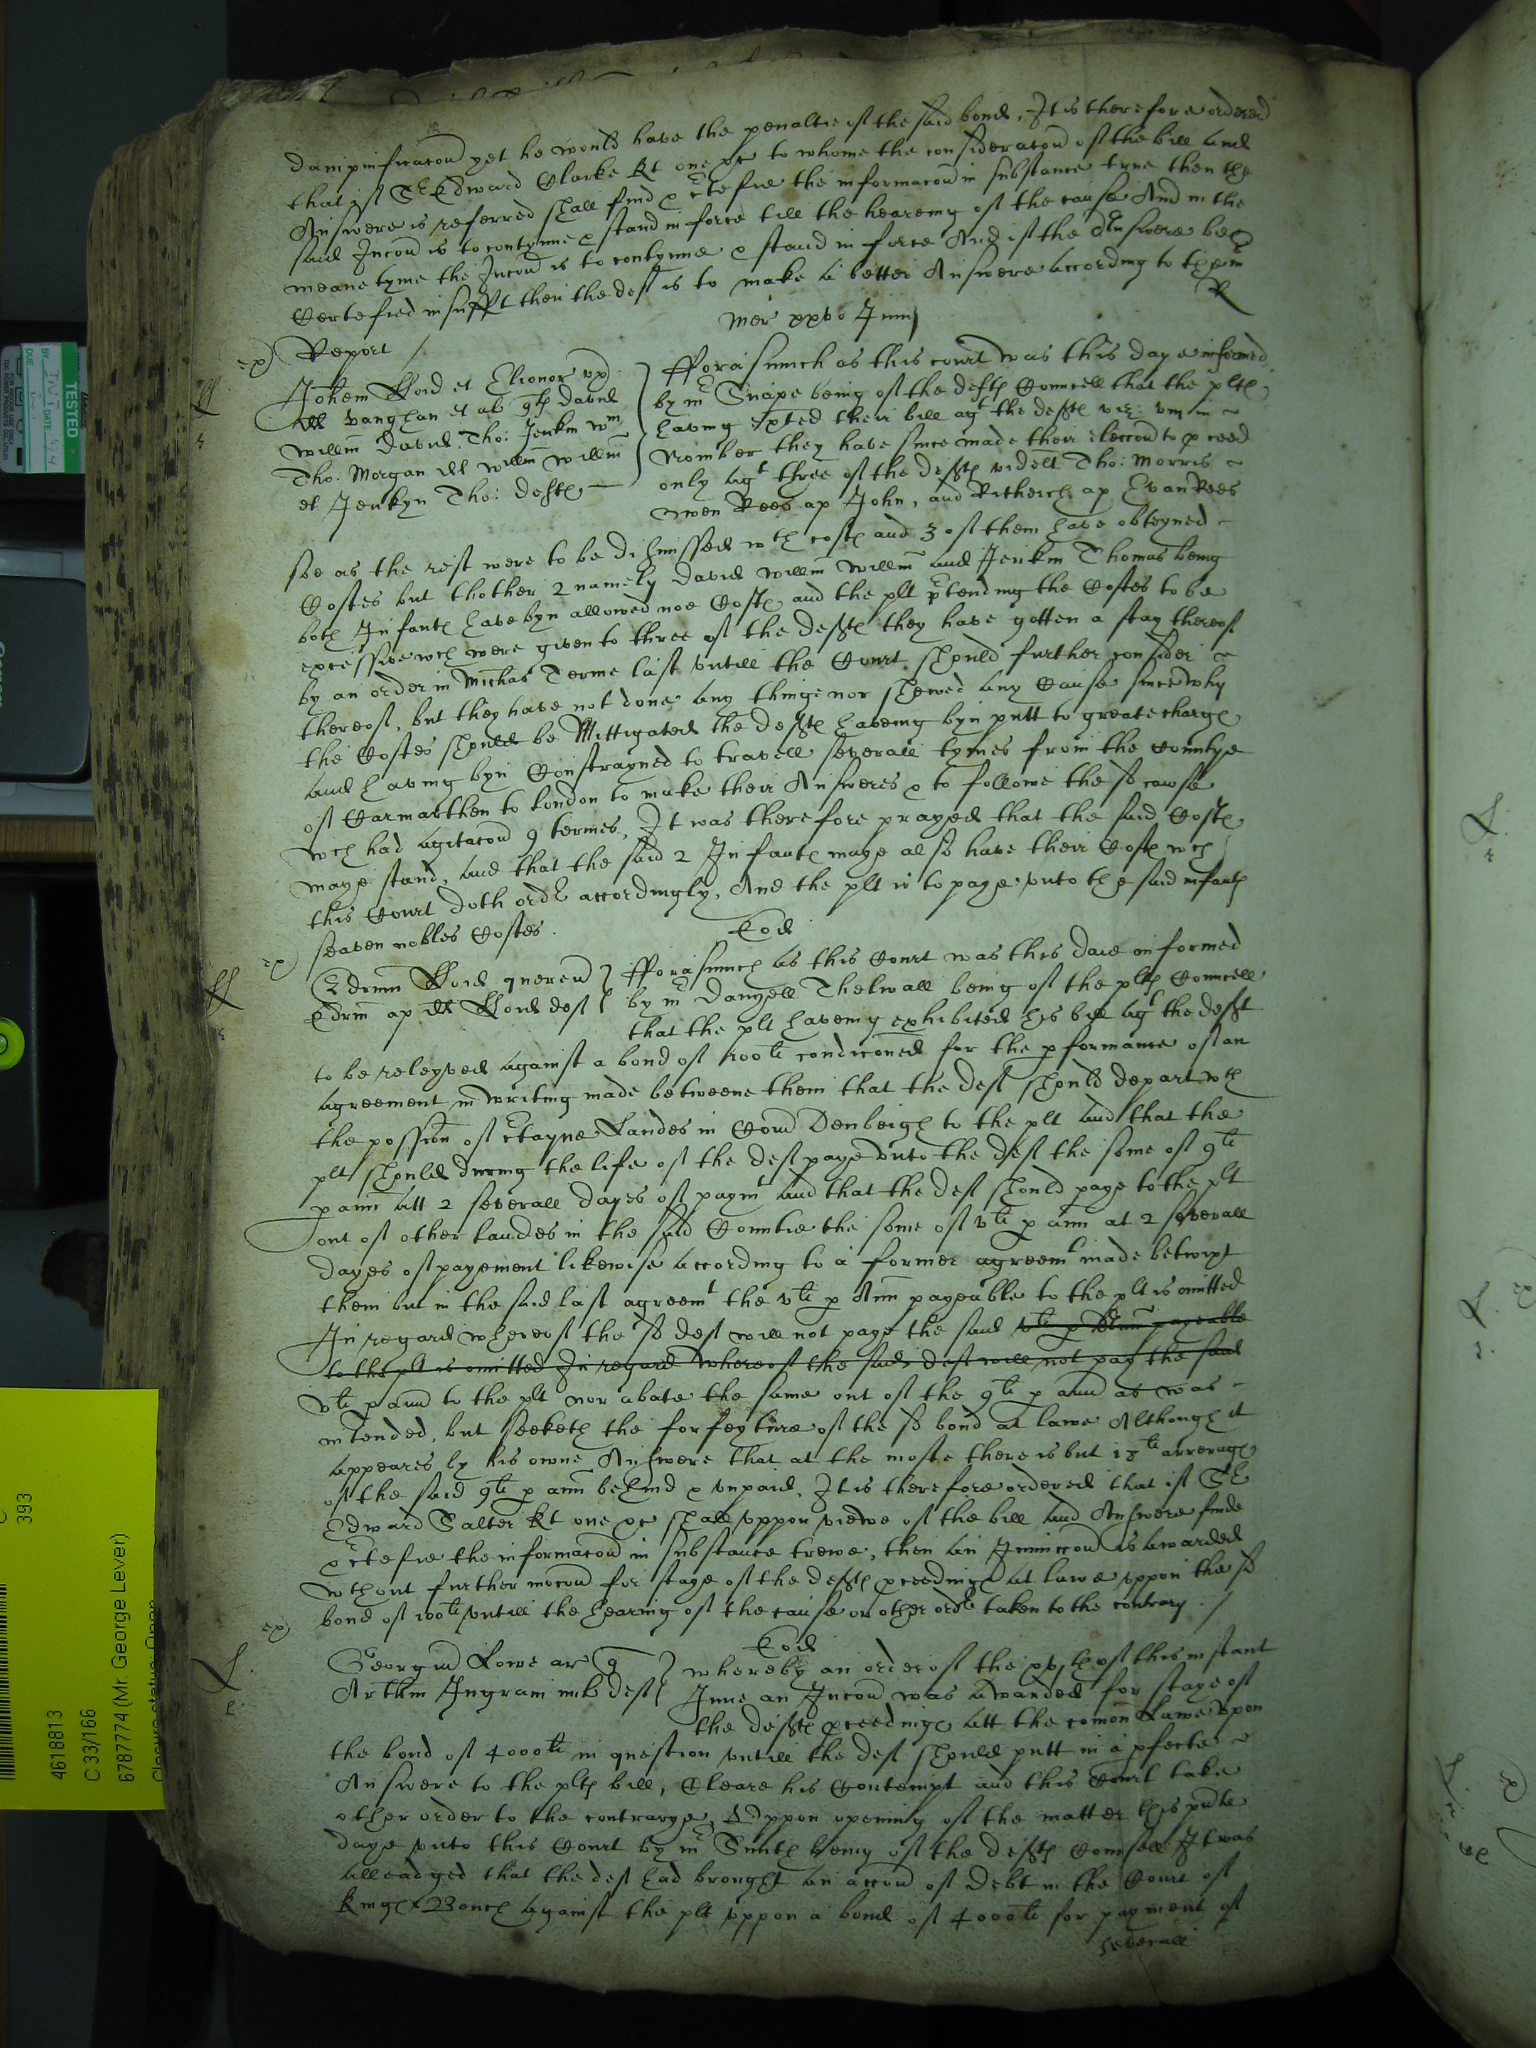 dampnificacon yet he would have the penaltie of the said bond, It is therefore ordered
that if Sr Edward Clarke kt one &c to whome the consideracon of the bill and
Answere is referred shall find & certefie the informacon in substance true then the
said Iniuncon is to contynue & stand in force till the hearing of the cause And in the
meane tyme the Iniuncon is to contynue & stand in force And if the Answere be
Certefied insufft then the deft is to make a better Answere according to the
R
Mer xxvo Junij
Report
Johem Lloid et Elionor vx
Vaughan et ab David
Willm David Tho: Jenkin Wm
Tho: Morgan Willm Willm
et Jenkyn Tho: defts
fforasmuch as this court was this daye informed
by mr Snape being of the defts Councell that the plts
having exhited their bill agt the defts viz: viii in
nomber they have since made their eleccon to pceed
only agt three of the defts videlt Tho: Morris
Owen Rees ap John, and Ritherch ap Evan Rees
soe as the rest were to be dismissed wth costs and 3 of them have obteyned
Costes but thother 2 namely David Willm Willm and Jenkin Thomas being
both Infants have byn allowed noe Costs and the plt ptending the Costes to be
excessive wch were given to three of the defts they have gotten a stay thereof
by an order in Michas Terme last vntill the Court should further consider
thereof, but they have not done any thinge nor shewed any Cause since why
the Costes should be Mittigated the defts haveing byn putt to greate charge
and having byn Constrayned to travell severall tymes from the Countye
of Carmarthen to London to make their Answeres & to followe the sd cawse
wch had agitacon 9 termes, It was therefore prayed that the said Costs
maye stand, and that the said 2 Infants maye also have their Costs wch
this Court doth order accordingly, And the plt is to paye vnto the said infants
seaven nobles Costes.
Eod
Edrum Lloid queren
Edrm ap Lloid deft
fforasmuch as this Court was this daie informed
by mr Danyell Thelwall being of the plts Councell
that the plt haveing exhibited his bill agt the deft
to be releyved against a bond of 100li condiconed for the pformance of an
agreement in writing made betweene them that the deft should depart wth
the possion of ctayne Landes in Com Denbeigh to the plt and that the
plt should during the life of the deft paye vnto the deft the some of 9li
p ann att 2 severall dayes of paymt and that the deft should paye to the plt
out of other landes in the said Countie the some of vli p ann at 2 severall
dayes of payement likewise according to a former agreemt made betwixt
them but in the said last agreemt the vli p Ann payeable to the plt is omitted
In regard whereof the sd deft will not paye the said vli p Ann payeable
to the plt is omitted In regard whereof the said deft will not pay the said
vli p ann to the plt nor abate the same out of the 9li p ann as was
intended, but seeketh the forfeyture of the sd bond at lawe Although it
appeares by his owne Answere that at the moste there is but 18li arrerages
of the said 9li p ann behind & vnpaid, It is therefore ordered that if Sr
Edward Salter kt one &c shall vppon viewe of the bill and Answere finde
& ctefie the informacon in substance trewe, then an Iniunccon is awarded
wthout further mocon for staye of the defts pceedings at lawe vppon the sd
bond of 100li vntill the hearing of the cause or other order taken to the contrary.
Eod
Georgius Lowe ar q
Arthm Ingram mil deft
whereby an order of the xvth of this instant
June an Iniuncon was awarded for staye of
the defts pceedings att the comon Lawe vpon
the bond of 4000li in question vntill the deft should putt in a pfecte
Answere to the plts bill, Cleare his Contempt and this Court take
other order to the contrarye, Vppon opening of the matter this pnte
daye vnto this Court by mr Smith being of the defts Counsell It was
alleadged that the deft had brought an accon of Debt in the Court of
Kings Bench against the plt vppon a bond of 4000li for payment of
severall
393
4618813
C 33/166
6787774 (Mr. George Lever)
TESTED